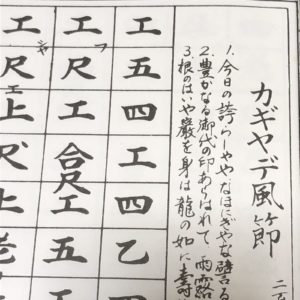 カギヤデ風節
1.今日の誇らしややなほにぎやな譬る
2.豊かなる御代の印あらはれて、雨露
3.根のはいや巌を身は龍の如に壽
工五四工四乙四
工フ尺工合尺工五工
工ヤ尺工上尺上老